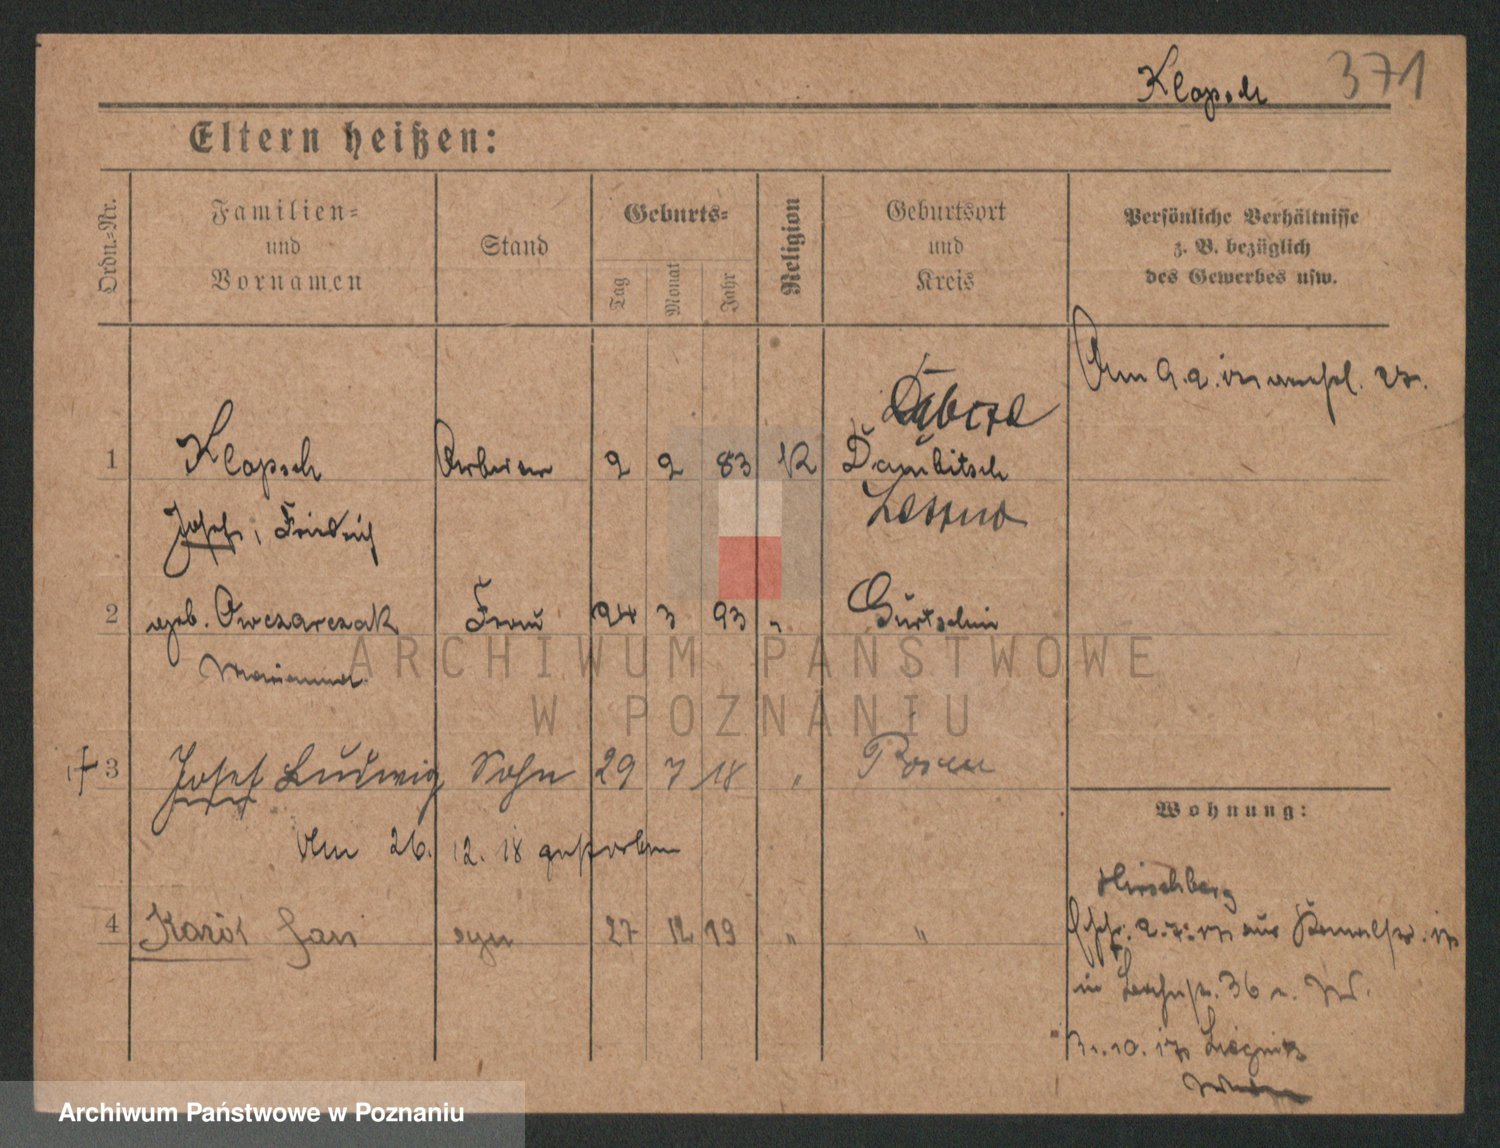 Klopsch 371
Eltern heißen:
Ordn.-Nr.
Familien- und Vornamen
Stand
Geburts-
Tag
Monat
Jahr
Religion
Geburtsort und Kreis
Persönliche Verhältnisse
z. B. bezüglich
des Gewerbes usw.
Am 9.2.
Dąbcze
1 Klopsch Arbeiter 2 2 83 K Dambitsch
Leszno
Josef, Friedrich
2 geb. Owczarczak Frau 24 3 93 " Gurtschin
Marianna
3 Josef Ludwig Sohn 29 7 18 " Posen
Wohnung:
Am 26. 12. 18 gestorben
Hirschberg
4 Karol Jan syn 27 12 19 " "
aus
in 36
10. 17 Liegnitz
ARCHIWUM PAŃSTWOWE
W POZNANIU
Archiwum Państwowe w Poznaniu